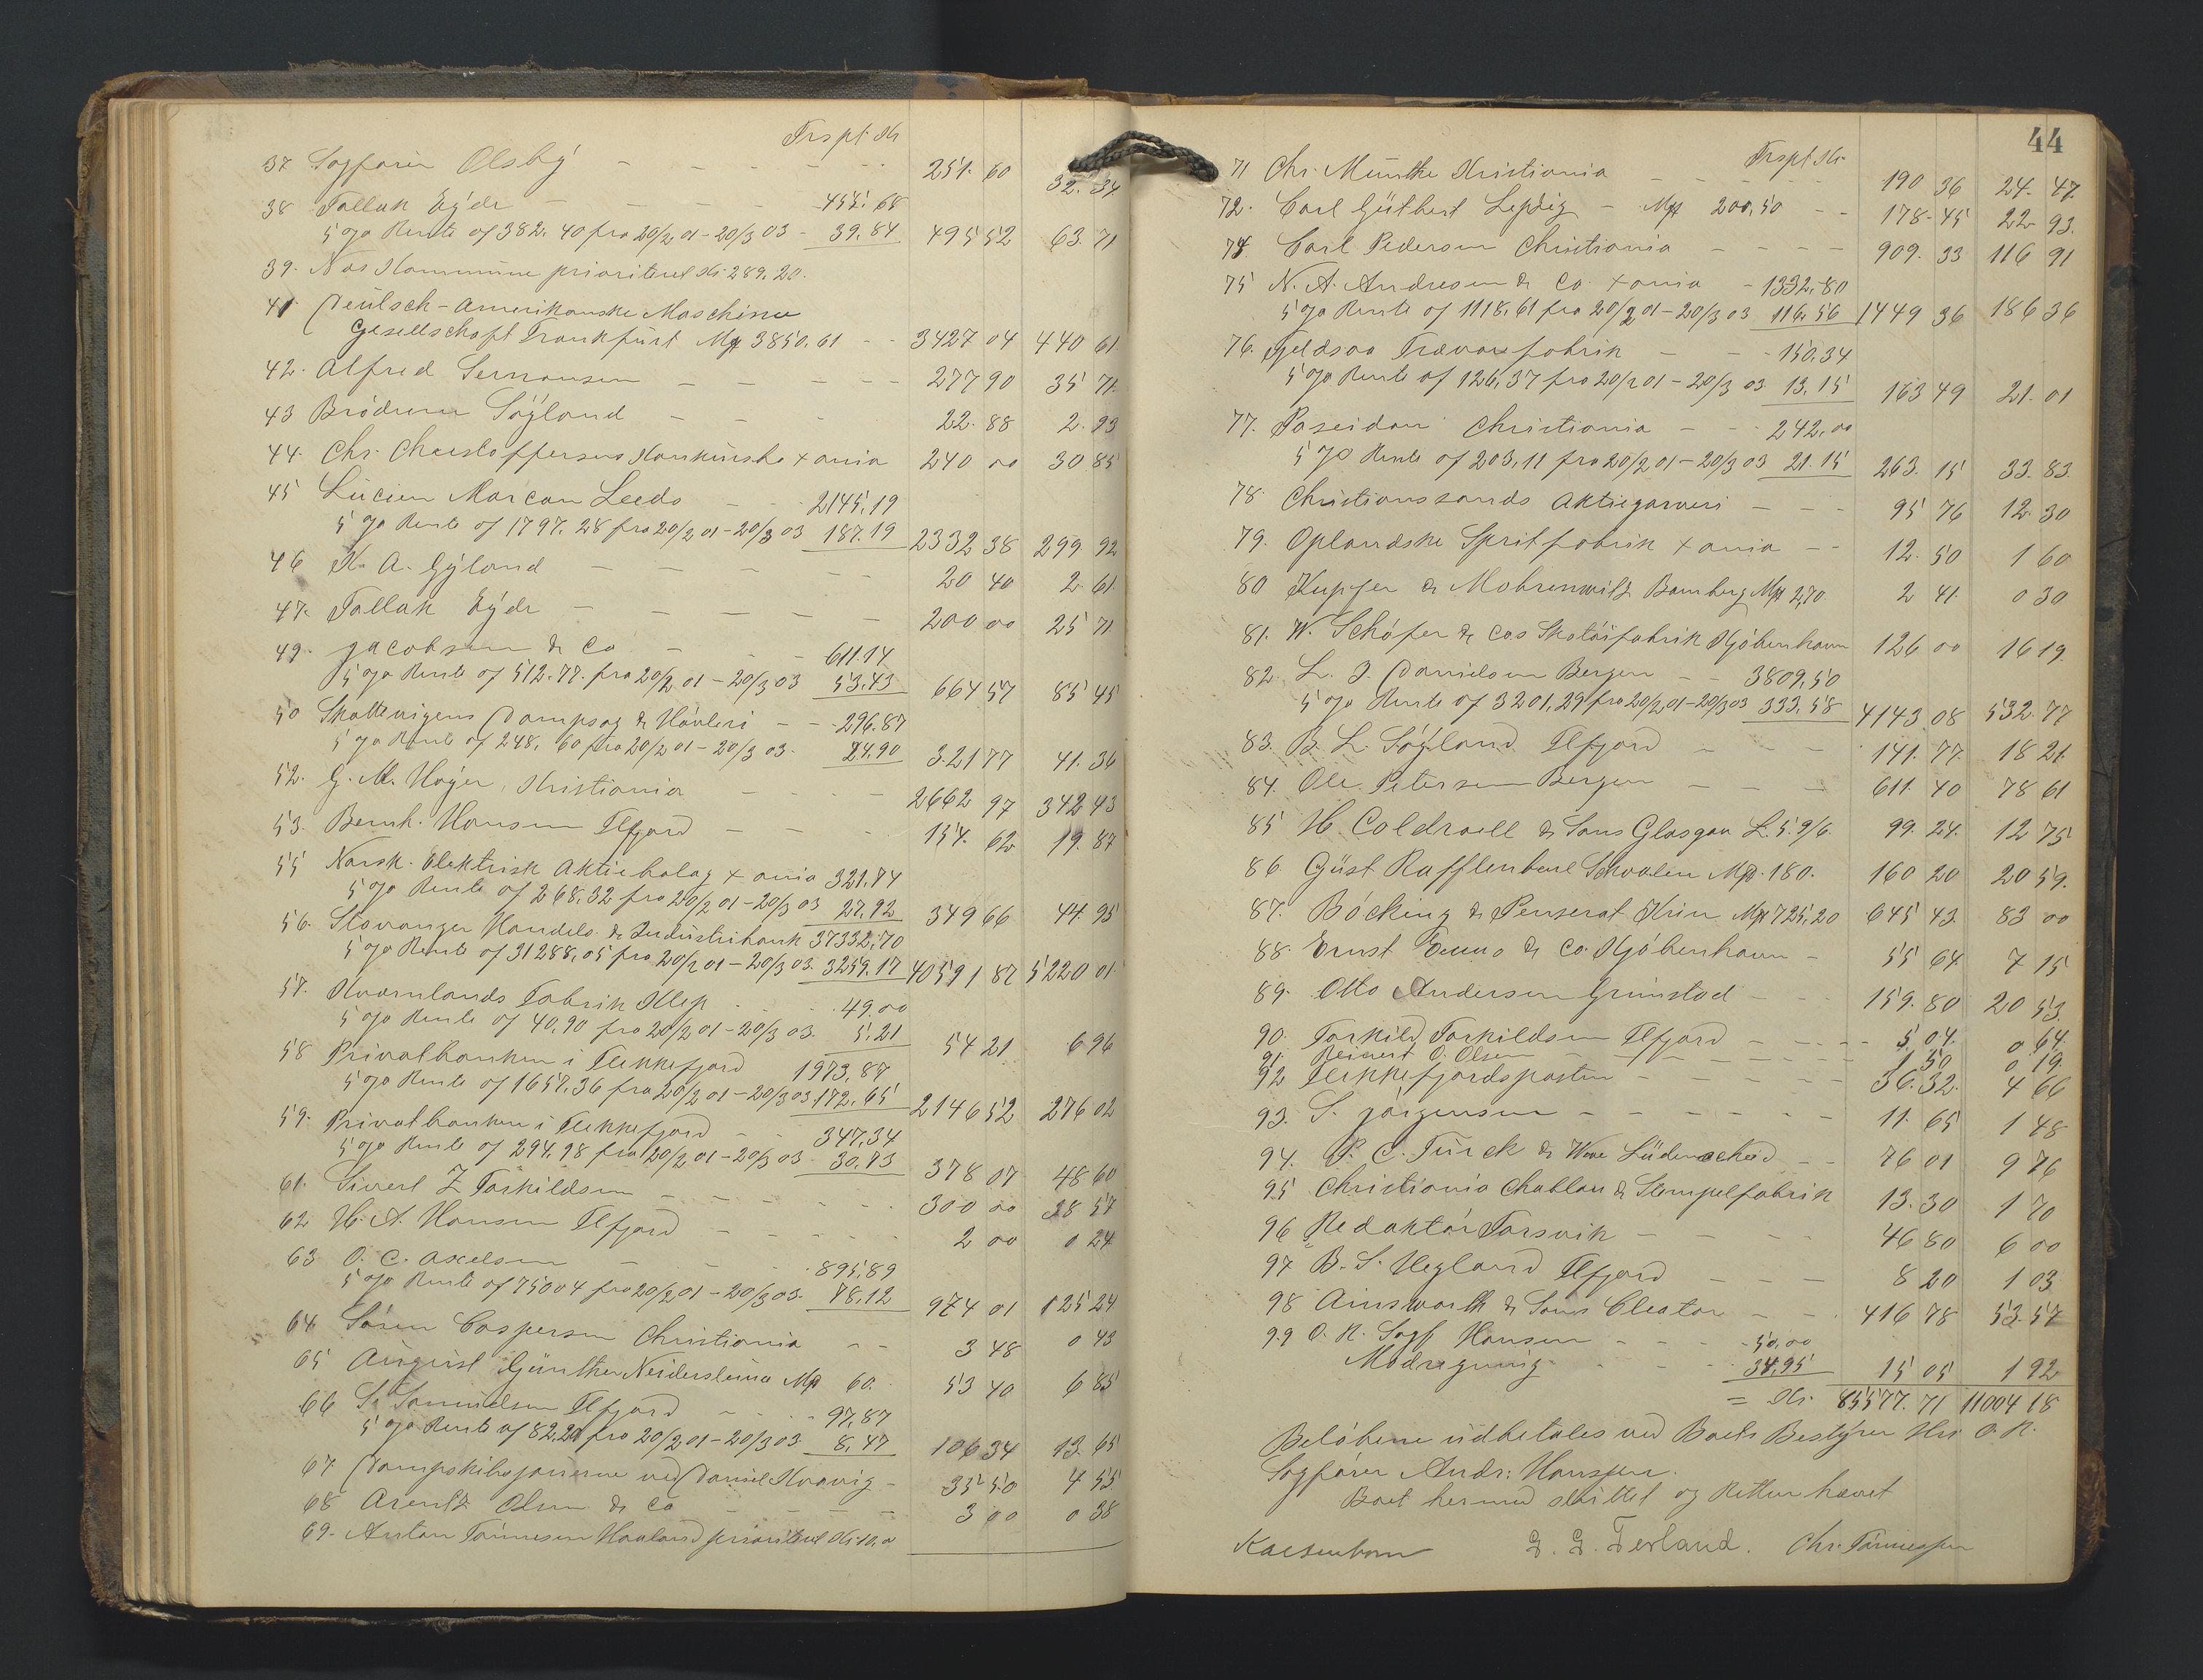 Trspt. Kr
37 Sagförer Olsby - - - - - 251. 60 32. 34
38 Tallak Eyde - - - - 455. 68
5 % Rente af 382. 40 fra 20/2 01 - 20/3 03 - 39. 84 495 52 63. 71
39. Nas Kommune prioriteret Kr 289. 20.
41 Deutsch-Amerikanske Maschinen
Gesellschaft Frankfurt Mk 3850. 61 - - 3427 04 440 61
42. Alfred - - - - - 277 90 35 71.
43 Brödrene Söyland - - - 22. 88 2. 93
44. Chr. Christoffersens Konkursbo Xania 240 00 30 85
45 Lucien Marcan Leeds - - 2145. 19
5 % Rente af 1797. 28 fra 20/2 01 - 20/3 03 187. 19 2332 38 299. 92
46 K. A. Gyland - - - - - - 20 40 2. 61.
47. Tallak Eyde - - - - - 200 00 25 71
49. Jacobsen & Co - - - 611. 14
5 % Rente af 512. 77. fra 20/2 01 - 20/3 03 53. 43 664 57 85 45
50 Dampsag & Hövleri - - - 296. 87
5 % Rente af 248. 60 fra 20/2 01 - 20/3 03. 24. 90 321 77 41. 36
52. G. M. Höyer, Kristiania - - - - 2662 97 342 43
53. Bernh. Hansen Flfjord - - - 154. 62 19. 87
55 Norsk. Elektrisk Aktiebolag Xania 321. 74
5 % Rente af 268. 32 fra 20/2 01 - 20/3 03 27. 92 349 66 44. 95
56. Stavanger Handels & Industribank 37332. 70
5 % Rente af 31288. 05 fra 20/2 01 - 20/3 03. 3259. 17 40591 87 5220 01.
57. Kvarnlands Fabrik Klep - - 49. 00
5 % Rente af 40. 90 fra 20/2 01 - 20/3 03. 5. 21 54 21 6 96
58 Privatbanken i Flekkefjord 1973. 87
5 % Rente af 1657. 36 fra 20/2 01 - 20/3 03 172. 65 2146 52 276 02
59. Privatbanken i Flekkefjord - - 347. 34
5 % Rente af 294. 98 fra 20/2 01 - 20/3 03 30. 73 378 07 48 60
61. Sivert Z Torkildsen - - - - - - 300 00 38 57
62 H. A. Hansen Flfjord - - - - - 2 00 0 24
63 O. C. Axelsen - - - 895. 89
5 % Rente af 75004 fra 20/2 01 - 20/3 03. 78. 12 974 01 125 24.
64 Sören Caspersen Christiania - - 3 48 0 43
65 August Günther Mk 60. 53 40 6 85
66 S. Samuelsen Flfjord - - - 97. 87
5 % Rente af 82. 20 fra 20/2 01 - 20/3 03. 8. 47 106 34 13. 65
67 ved Daniel - 35 50 4 55.
68 Arentz Olsen & Co - - - - 3 00 0 38
69. Anton Tönnesen Haaland prioriteret Kr 10. 00
44
Trspt. Kr
71 Chr. Munthe Kristiania - - - 190 36 24. 47.
72. Carl Güthert Leipzig - Mk 200. 50 - - 178. 45 22 93.
74. Carl Pedersen Christiania - - - - 909. 33 116 91
75 N. A. Andresen & Co. Xania - 1332. 80
5 % Rente af 1118. 61 fra 20/2 01 - 20/3 03 116. 56 1449 36 186 36
76. Trævarefabrik - - - 150. 34
5 % Rente af 126. 37 fra 20/2 01 - 20/3 03 13. 15 163 49 21. 01
77. Poseidon Christiania - - - 242. 00
5 % Rente af 203. 11 fra 20/2 01 - 20/3 03 21. 15 263. 15 33. 83.
78. Christianssands Aktiegarveri - - - 95 76 12. 30
79. Oplandske Spritfabrik Xania - - 12. 50 1 60
80 Kupfer & Mohrenwitz Bamberg Mk 2,70 2 41. 0 30
81. W. Schöfer & Cos Skotöifabrik Kjöbenhavn 126 00 16 19.
82. L. J. Danielsen Bergen - - 3809. 50
5 % Rente af 3201. 29 fra 20/2 01 - 20/3 03 333. 58 4143 08 532. 77
83. B. L. Söyland Flfjord - - - 141. 77. 18 21.
84. Ole Petersen Bergen - - - 611. 40 78 61
85 H. Coldraell & Sons Glasgow L. 5. 9/6. 99. 24. 12 75
86 Gust Rafflenbeul Mk. 180. 160 20 20 59.
87. Böcking & Mk 725. 20 645 43. 83 00
88. Ernst & Co. Kjöbenhavn - 55 64. 7 15
89. Otto Andersen Grimstad - - - 159. 80 20 53.
90. Torkild Torkildsen Flfjord - - - - 5 04. 0 64.
91. Reinert O. Olsen - - - - - 1. 50 0 19.
92 Flekkefjordsposten - - - - - 36. 32. 4 66
93. S. Jörgensen - - - - - - 11. 65 1 48
94. P. C. Turck & Wwe Lüdenscheid - - 76 01 9 76
95 Christiania Chablon & Stempelfabrik 13. 30 1 70
96 Redaktör Torsvik - - - - 46 80 6 00
97 B. S. Hegland Flfjord - - - 8 20 1 03
98 Ainsworth & Sons Cleator - - - 416 78 53. 57
99 O. R. Sagf Hansen - - - 50. 00
Modregning - - - - 34. 95 15 05 1 92
= Kr. 85577. 71 11004 18
Belöbene udbetales ved Boets Bestyrer Hr O. R.
Sagförer Andr: Hanssen.
Boet hermed sluttet og Retten hævet
Kaesenborn G. G. Terland. Chr. Tönnessen